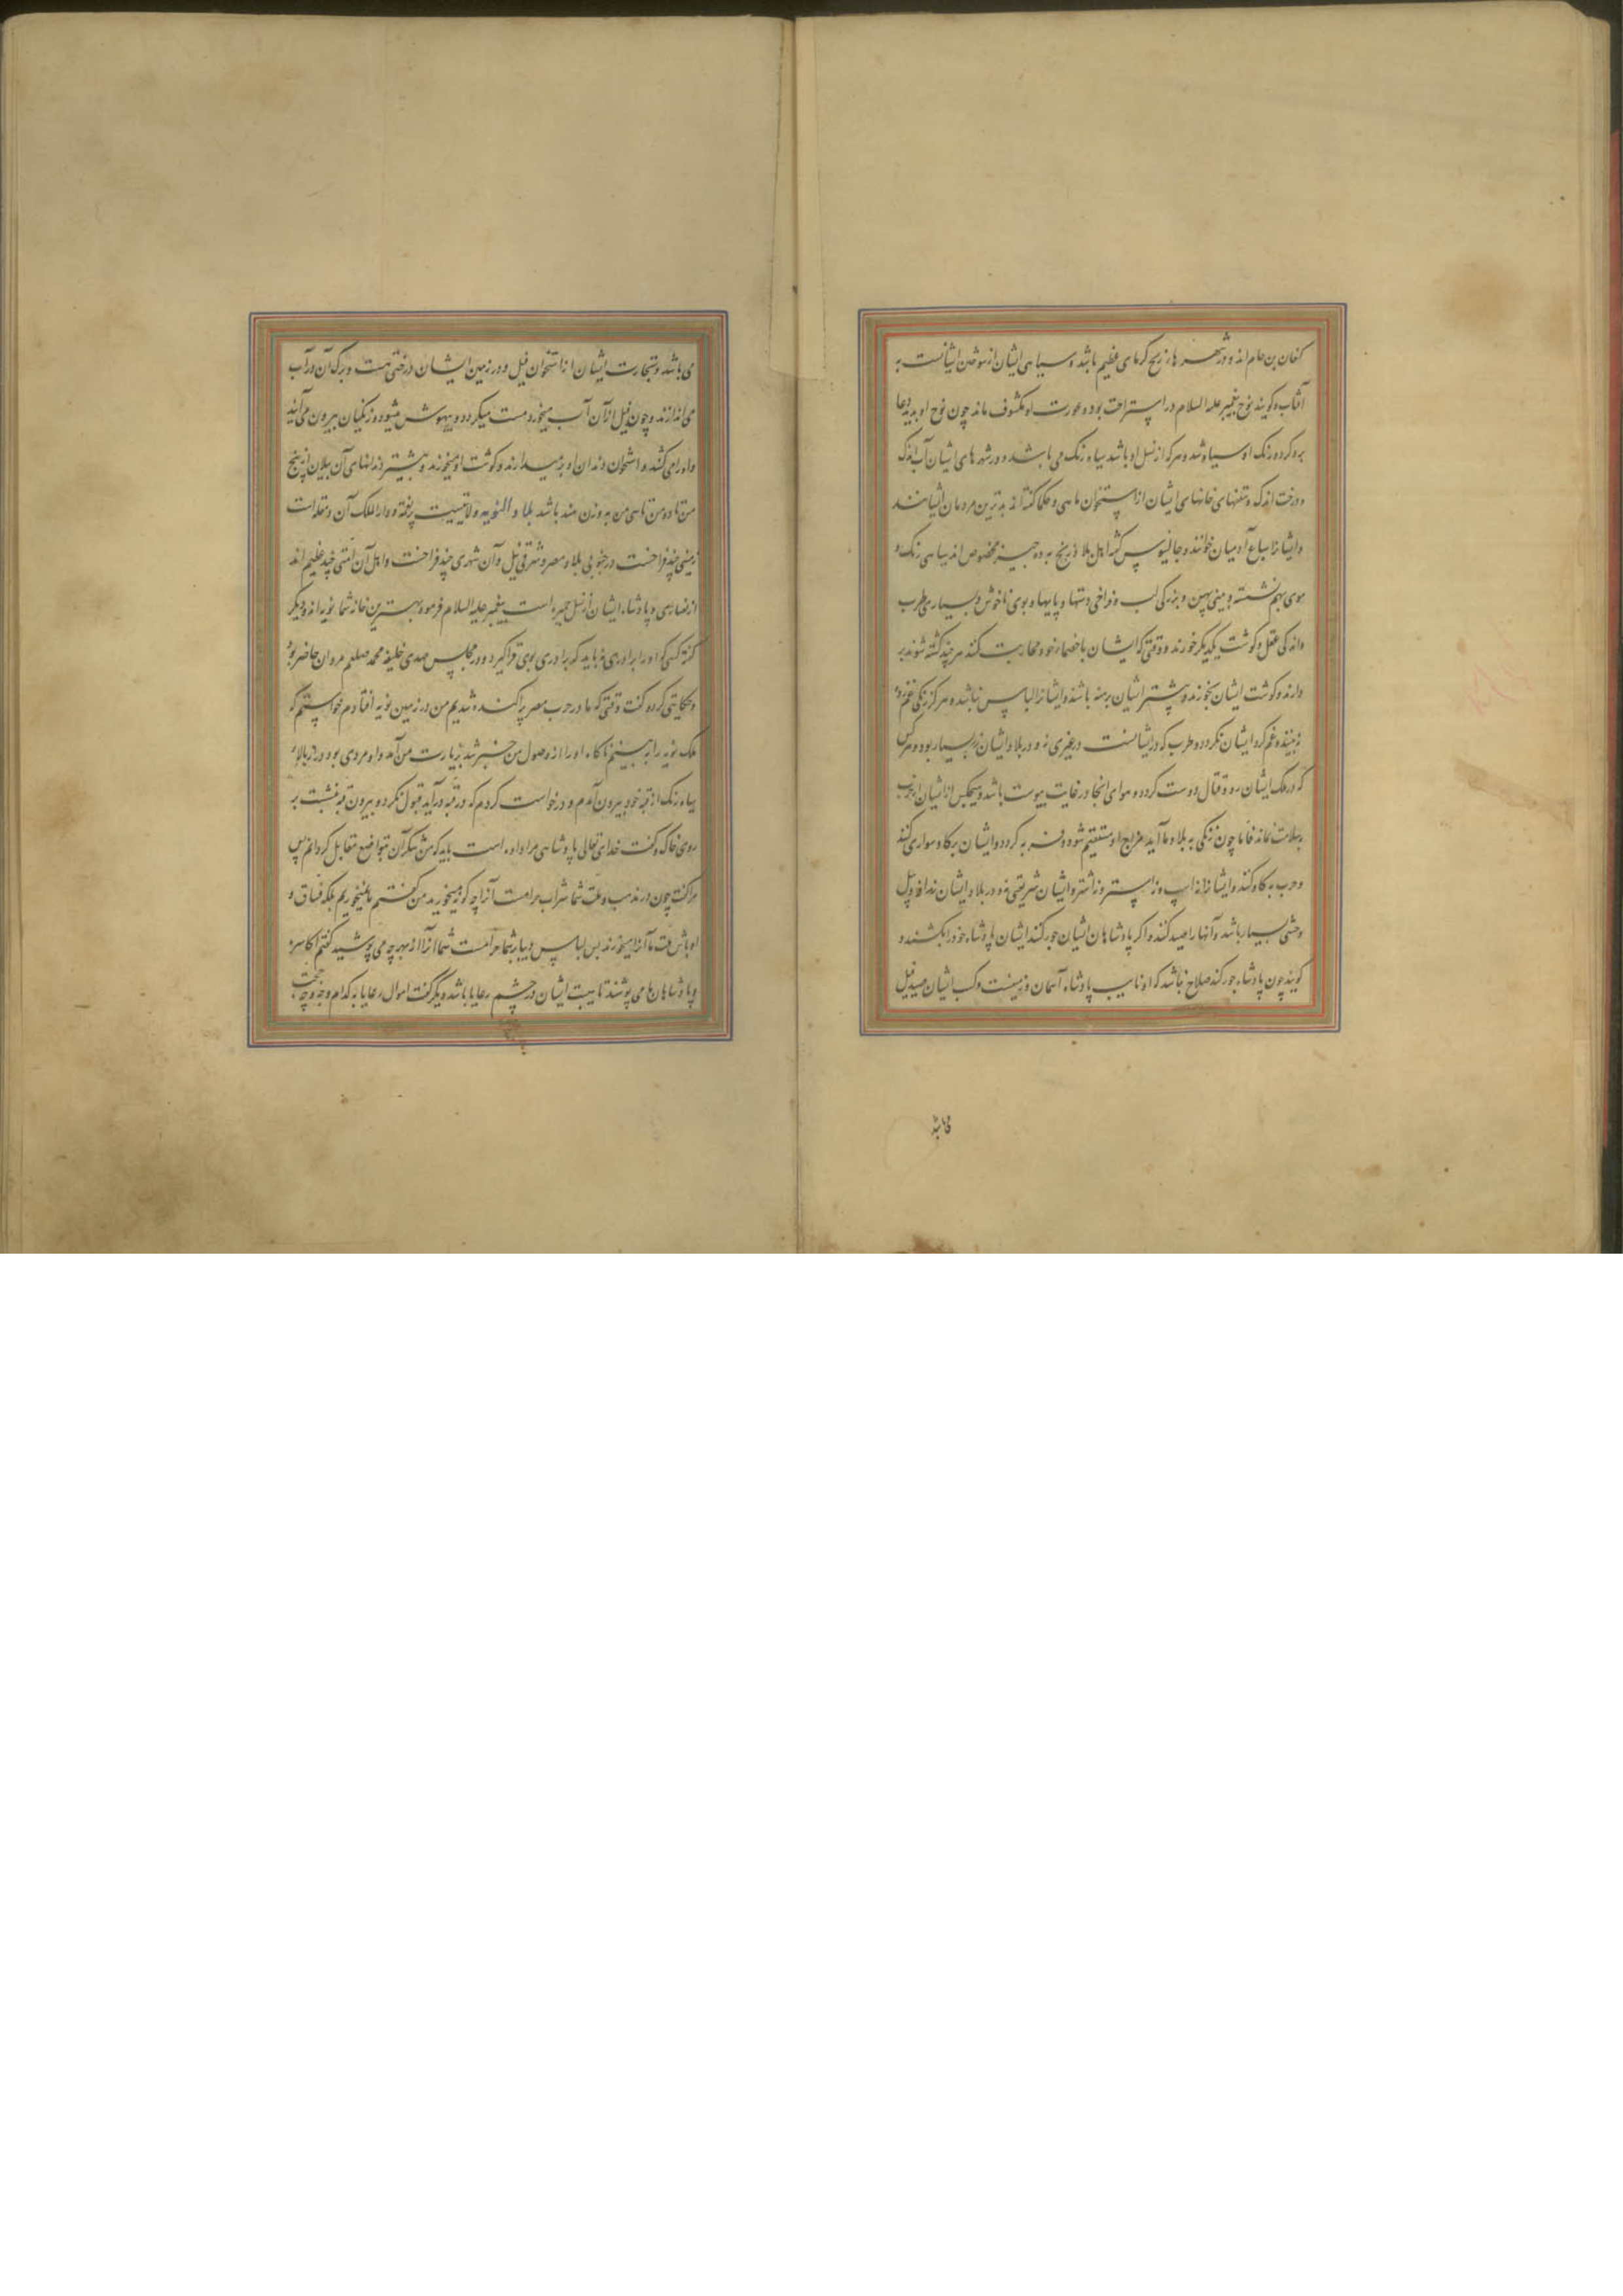 کنعان بن حام اند و در شهرهای زنج گرمای عظیم باشد و سیاهی ایشان از سوختن ایشانست به
آفتاب و گویند نوح پیغمبر علیه السلام در استراحت بود و عورت او مکشوف ماند چون نوح او بد دعا
بدو کرد و رنگ او سیاه شد و هر که از نسل او باشد سیاه رنگ می باشد و در شهرهای ایشان آب اندک
و درخت اندک و سقفهای خانهای ایشان از استخوان ماهی و حکما گفته اند بدترین مردمان ایشانند
و ایشانرا سباع آدمیان خوانند و جالینوس گفته اهل بلاد زنج به ده چیز مخصوص اند سیاهی رنگ و
موی بهم نشسته و بینی پهن و بزرگی لب و فراخی دستها و پایها و بوی ناخوش و بسیاری طرب
و اندکی عقل و گوشت یکدیگر خورند و وقتی که ایشان با خصمان خود محاربت کنند هر چند کشته شوند بر
دارند و گوشت ایشان بخورند و بیشتر ایشان برهنه باشند و ایشانرا لباس نباشد و هرگز زنگی غم زده
نه بینند و غم گرد ایشان نگردد و طرب که در ایشانست در غیری نه و در بلاد ایشان زر بسیار بود و هر کس
که در ملک ایشان رود قتال دوست گردد و هوای انجا در غایت یبوست باشد و هیچکس از ایشان از جرب
بسلامت نماند فاما چون زنگی به بلاد ما آید مزاج او مستقیم شود و فربه گردد و ایشان بر گاو سواری کنند
و حرب به گاو کنند و ایشانرا نه اسپ و نه استر و نه اشتر و ایشان شریعتی نه و در بلاد ایشان ندافد و پیل
وحشی بسیار باشد و آنها را صید کنند و اگر پادشاهان ایشان جور کنند ایشان پادشاه خود را بکشند و
گویند چون پادشاه جور کند صلاح نباشد که او نایب پادشاه آسمان و زمینست و کسب ایشان صید فیل
می باشد و تجارت ایشان از استخوان فیل و در زمین ایشان درختی هست و برگ آن در آب
می اندازند و چون فیل از آن آب میخورد مست میگردد و بیهوش میشود و زنگیان بیرون می آیند
و او را می کشند و استخوان دندان او بر میدارند و گوشت او میخورند و بیشتر دندانهای آن پیلان از پنج
من تا دو من تا سی من به وزن هند باشد بلاد النوبه ولایتیست رفته و دار الملک آن دمقله است
زمینی چند فراخست در جنوبی بلاد مصر و شرقی نیل و آن شهری چند فراخست و اهل آن امتی چند عظیم اند
از نصاری و پادشاه ایشان از نسل حمیر است پیغمبر علیه السلام فرمود بهترین خانه شما نوبه اند و دیگر
گفته کسی که او را برادری نباید که برادری بوی فراگیرد و در مجلس مهدی خلیفه محمد صلعم مروان حاضر بود
و حکایتی کرد و گفت وقتی که ما در حرب مصر پراکنده شدیم من در زمین نوبه افتادم خواستم که
ملک نوبه را به بینم ناگاه او را از وصول من خبر شد بزیارت من آمد و او مردی بود دراز بالا و
سیاه رنگ از قبه خود بیرون آمدم و درخواست کردم که در قبه درآید قبول نکرد و بیرون قبه بنشست بر
روی خاک و گفت خدای تعالی پادشاهی مرا داده است باید که من شکر آن بتواضع مقابل گردانم پس
مرا گفت چون در مذهب و ملت شما شراب حرامست آنرا چه گونه میخورید من گفتم ما نمیخوریم بلکه فساق و
اوباش ملت ما آنرا میخورند پس لباس دیبا بر شما حرامست شما آنرا از بهر چه می پوشید گفتم اکاسره
و پادشاهان ما می پوشند تا هیبت ایشان در چشم رعایا باشد دیگر گفت اموال رعایا به کدام وجه و چه حجت